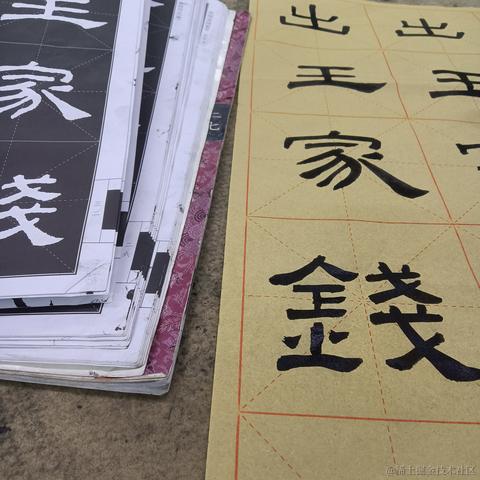 出王
出王家錢
王家
二七
@稀土掘金技术社区